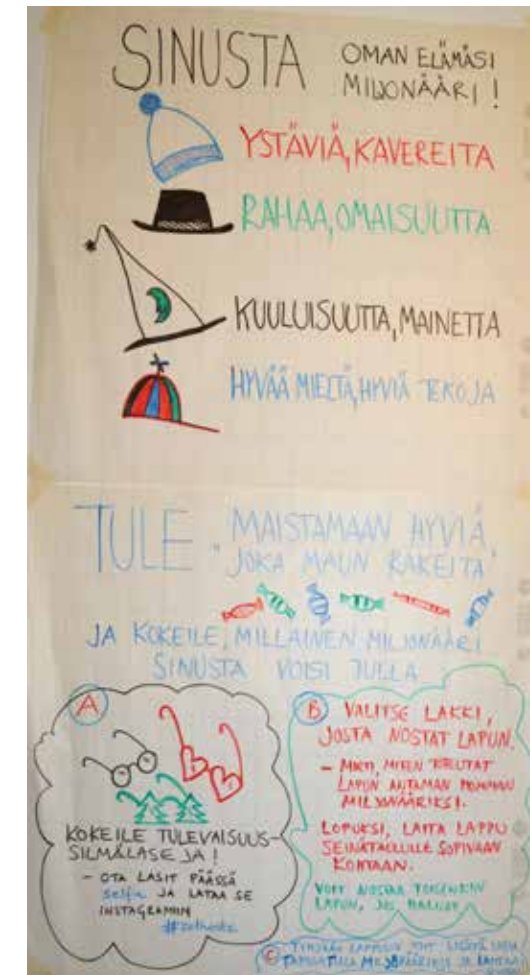 SINUSTA OMAN ELÄMÄSI
MILJONÄÄRI!
YSTÄVIÄ, KAVEREITA
RAHAA, OMAISUUTTA
KUULUISUUTTA, MAINETTA
HYVÄÄ MIELTÄ, HYVIÄ TEKOJA
TULE "MAISTAMAAN HYVIÄ,
JOKA MAUN RAKEITA"
JA KOKEILE, MILLAINEN MILJONÄÄRI
SINUSTA VOISI TULLA
A
KOKEILE TULEVAISUUS-
SILMÄLASEJA!
- OTA LASIT PÄÄSSÄ
selfie JA LATAA SE
INSTAGRAMIIN
B VALITSE LAKKI,
JOSTA NOSTAT LAPUN.
- MIETI, MITEN
LAPUN ANTAMAN
MILJONÄÄRIKSI.
LOPUKSI, LAITA LAPPU
SEINÄTAULULLE SOPIVAAN
KOHTAAN.
VOIT NOSTAA TOISENKIN
LAPUN, JOS HALUAT
C